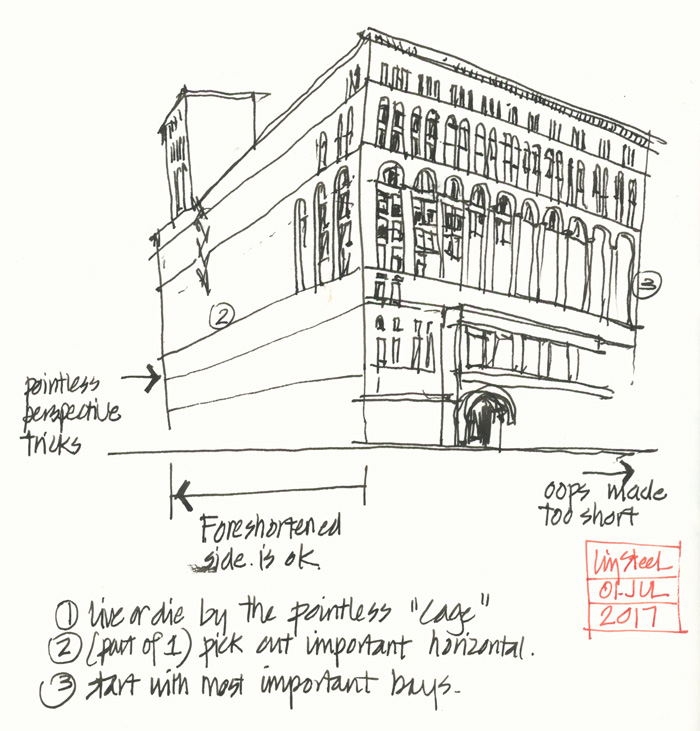 2
3
pointless
perspective
tricks
oops made
too short
Foreshortened
side is ok.
Liz Steel
01.JUL
2017
① live or die by the pointless "cage"
② (part of 1) pick out important horizontal.
③ start with most important bays.